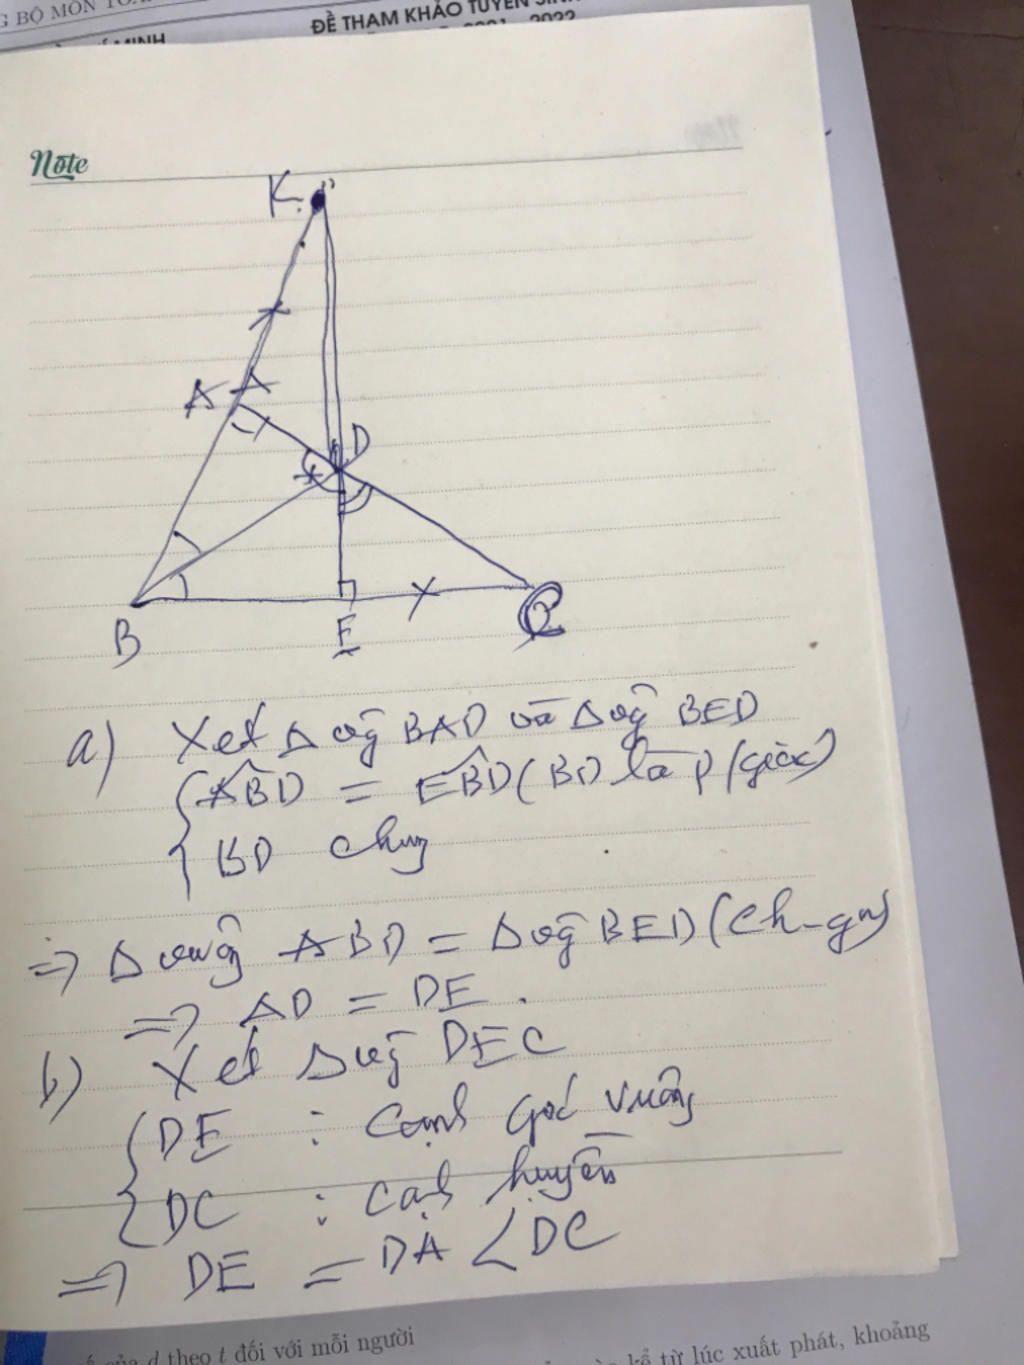 G BỘ MÔN TOÁN
ĐỀ THAM KHẢO TUYỂN SINH
MINH
2021 - 2022
Note
K
A
D
B
E
C
a) Xét Δ vg BAD và Δ vg BED
ABD = EBD (BD là p/giác)
BD chung
=> Δ vuông ABD = Δ vg BED (ch-gn)
=> AD = DE.
b) Xét Δ vg DEC
DE : Cạnh góc vuông
DC : cạnh huyền
=> DE = DA < DC
số của d theo t đối với mỗi người
kể từ lúc xuất phát, khoảng